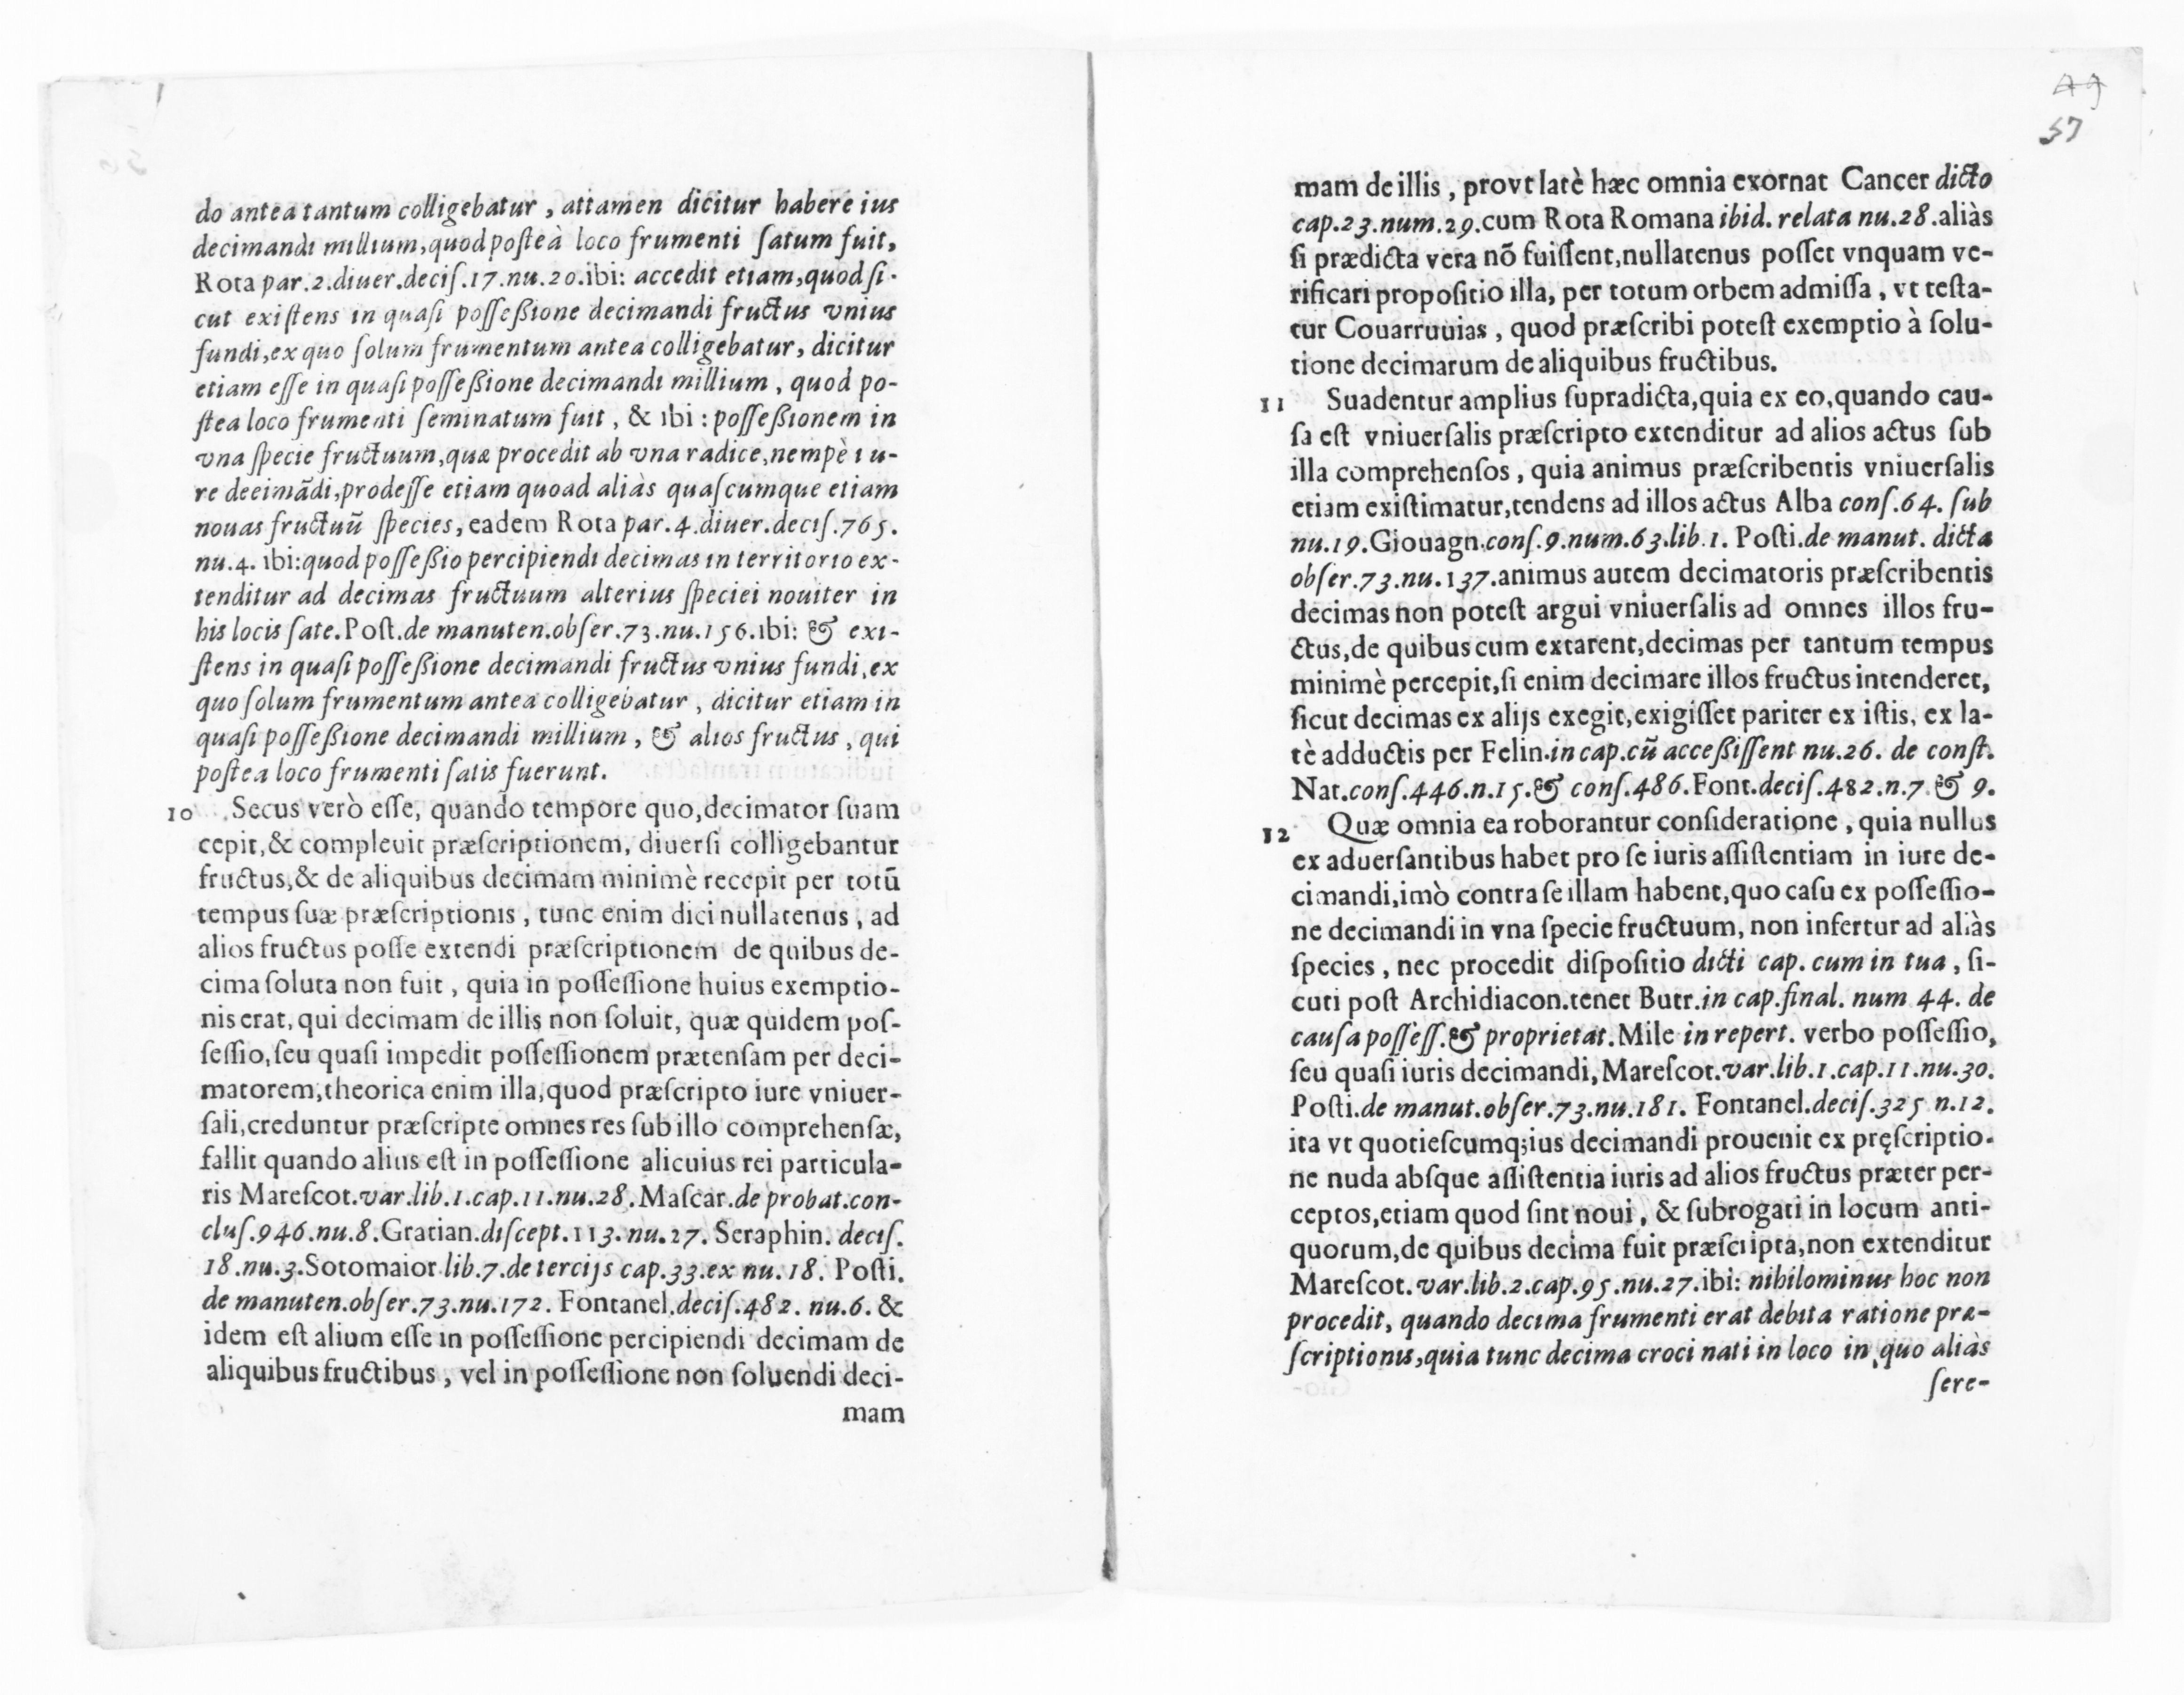 do antea tantum colligebatur, attamen dicitur habere ius
decimandi millium, quod posteà loco frumenti ſatum fuit,
Rota par.2.diuer.deciſ.17.nu.20.ibi: accedit etiam, quod ſi-
cut exiſtens in quaſi poſſeßione decimandi fructus vnius
fundi, ex quo ſolum frumentum antea colligebatur, dicitur
etiam eſſe in quaſi poſſeßione decimandi millium, quod po-
ſtea loco frumenti ſeminatum fuit, & ibi: poſſeßionem in
vna ſpecie fructuum, quæ procedit ab vna radice, nempè iu-
re deeimãdi, prodeſſe etiam quoad aliàs quaſcumque etiam
nouas fructuũ ſpecies, eadem Rota par.4.diuer.deciſ.765.
nu.4. ibi: quod poſſeßio percipiendi decimas in territorio ex-
tenditur ad decimas fructuum alterius ſpeciei nouiter in
his locis ſate. Poſt.de manuten.obſer.73.nu.156.ibi: & exi-
ſtens in quaſi poſſeßione decimandi fructus vnius fundi, ex
quo ſolum frumentum antea colligebatur, dicitur etiam in
quaſi poſſeßione decimandi millium, & alios fructus, qui
poſtea loco frumenti ſatis fuerunt.
10 Secus verò eſſe, quando tempore quo, decimator ſuam
cepit, & compleuit præſcriptionem, diuerſi colligebantur
fructus, & de aliquibus decimam minimè recepit per totũ
tempus ſuæ præſcriptionis, tunc enim dici nullatenus, ad
alios fructus poſſe extendi præſcriptionem de quibus de-
cima ſoluta non fuit, quia in poſſeſſione huius exemptio-
nis erat, qui decimam de illis non ſoluit, quæ quidem poſ-
ſeſſio, ſeu quaſi impedit poſſeſſionem prætenſam per deci-
matorem, theorica enim illa, quod præſcripto iure vniuer-
ſali, creduntur præſcripte omnes res ſub illo comprehenſæ,
fallit quando alius eſt in poſſeſſione alicuius rei particula-
ris Mareſcot.var.lib.1.cap.11.nu.28. Maſcar.de probat.con-
cluſ.946.nu.8.Gratian.diſcept.113.nu.27. Seraphin. deciſ.
18.nu.3.Sotomaior lib.7.de tercijs cap.33.ex nu.18. Poſti.
de manuten.obſer.73.nu.172. Fontanel.deciſ.482. nu.6. &
idem eſt alium eſſe in poſſeſſione percipiendi decimam de
aliquibus fructibus, vel in poſſeſſione non ſoluendi deci-
mam
49
57
mam de illis, provt latè hæc omnia exornat Cancer dicto
cap.23.num.29.cum Rota Romana ibid. relata nu.28.aliàs
ſi prædicta vera nõ fuiſſent, nullatenus poſſet vnquam ve-
rificari propoſitio illa, per totum orbem admiſſa, vt teſta-
tur Couarruuias, quod præſcribi poteſt exemptio à ſolu-
tione decimarum de aliquibus fructibus.
11 Suadentur amplius ſupradicta, quia ex eo, quando cau-
ſa eſt vniuerſalis præſcripto extenditur ad alios actus ſub
illa comprehenſos, quia animus præſcribentis vniuerſalis
etiam exiſtimatur, tendens ad illos actus Alba conſ.64. ſub
nu.19.Giouagn.conſ.9.num.63.lib.1. Poſti.de manut. dicta
obſer.73.nu.137.animus autem decimatoris præſcribentis
decimas non poteſt argui vniuerſalis ad omnes illos fru-
ctus, de quibus cum extarent, decimas per tantum tempus
minimè percepit, ſi enim decimare illos fructus intenderet,
ſicut decimas ex alijs exegit, exigiſſet pariter ex iſtis, ex la-
tè adductis per Felin.in cap.cũ acceßiſſent nu.26. de conſt.
Nat.conſ.446.n.15.& conſ.486.Font.deciſ.482.n.7.& 9.
12 Quæ omnia ea roborantur conſideratione, quia nullus
ex aduerſantibus habet pro ſe iuris aſſiſtentiam in iure de-
cimandi, imò contra ſe illam habent, quo caſu ex poſſeſſio-
ne decimandi in vna ſpecie fructuum, non infertur ad aliàs
ſpecies, nec procedit diſpoſitio dicti cap. cum in tua, ſi-
cuti poſt Archidiacon.tenet Butr.in cap.final. num 44. de
cauſa poſſeſſ.& proprietat.Mile in repert. verbo poſſeſſio,
ſeu quaſi iuris decimandi, Mareſcot.var.lib.1.cap.11.nu.30.
Poſti.de manut.obſer.73.nu.181. Fontanel.deciſ.325 n.12.
ita vt quotieſcumq;ius decimandi prouenit ex pręſcriptio-
ne nuda abſque aſſiſtentia iuris ad alios fructus præter per-
ceptos, etiam quod ſint noui, & ſubrogati in locum anti-
quorum, de quibus decima fuit præſcripta, non extenditur
Mareſcot.var.lib.2.cap.95.nu.27.ibi: nihilominus hoc non
procedit, quando decima frumenti erat debita ratione præ-
ſcriptionis, quia tunc decima croci nati in loco in quo aliàs
ſere-